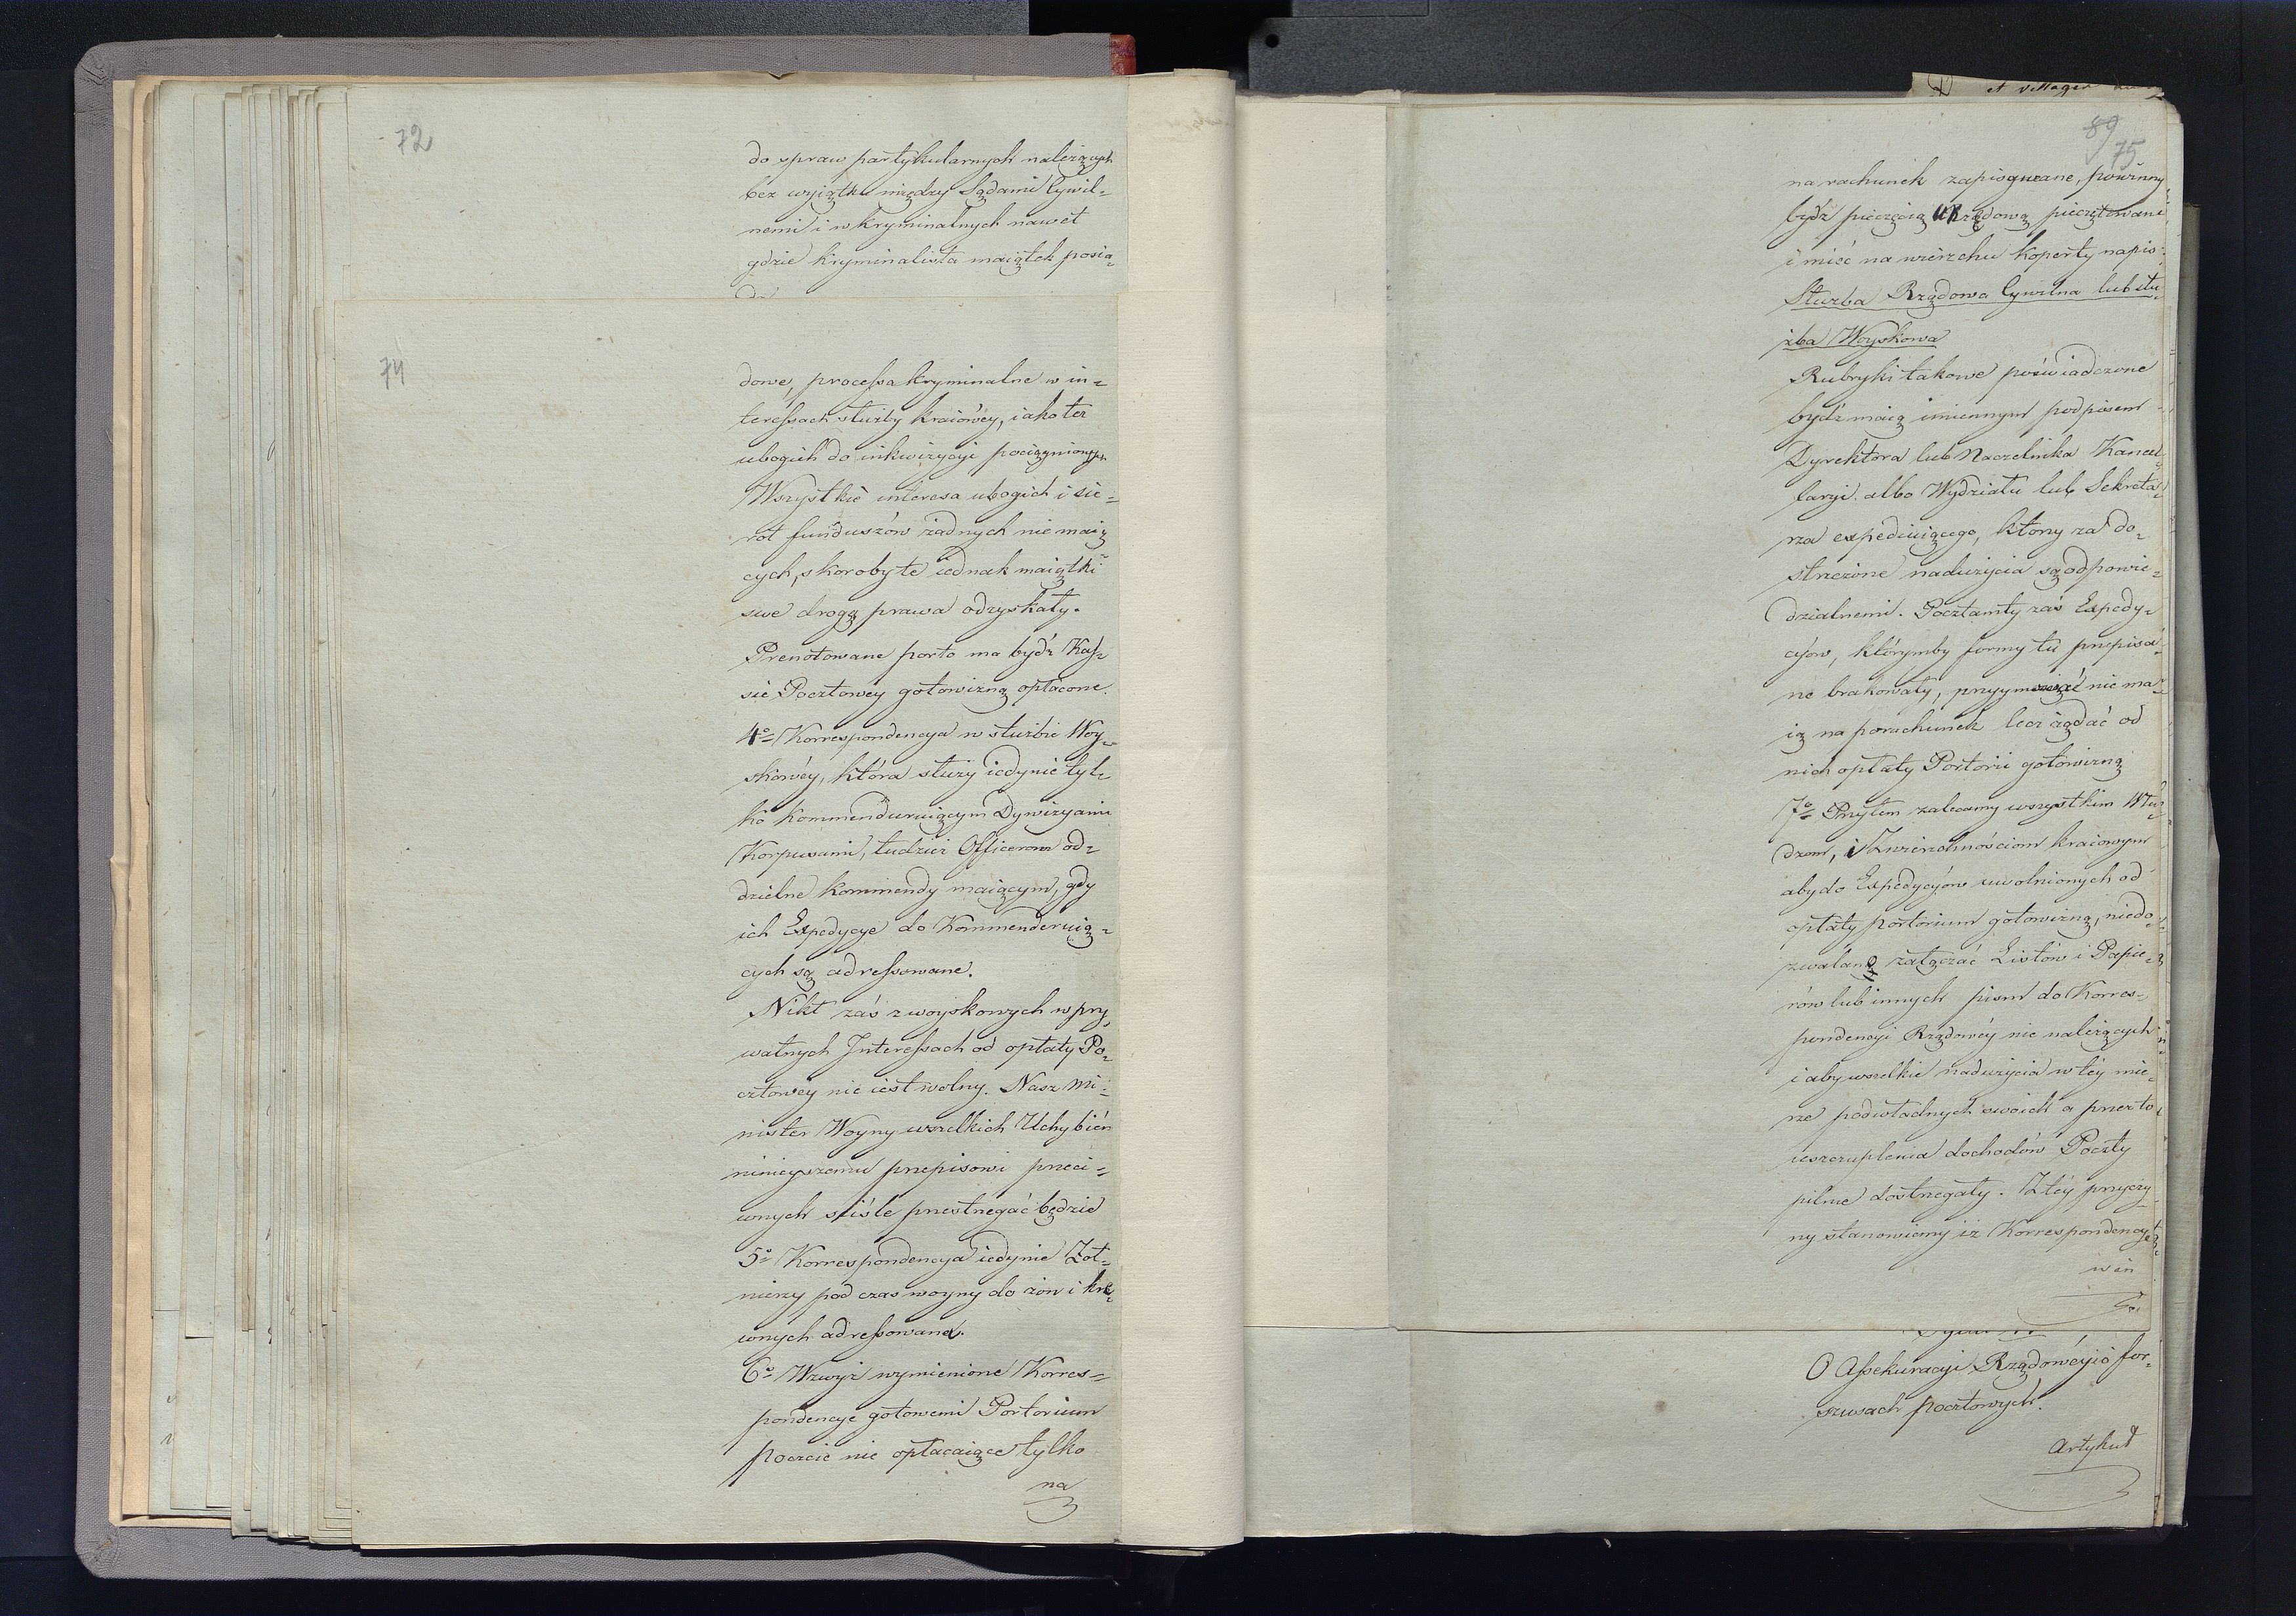 72
do spraw partykularnych należących
bez wyiątku między Sądami Cywil=
nemi i w kryminalnych nawet
gdzie kryminalista maiątek posia-
da
74
dowe, processa kryminalne w in=
teressach służby kraiowéy, iako też
ubogich do inkwizycyi pociągnionych
Wszystkie interesa ubogich i sie=
rot funduszów żadnych nie maią
cych, skoroby te iednak maiątki
swe drogą prawa odzyskały.
Prenotowane porto ma bydź Kas=
sie Pocztowey gotowizną opłacone.
4o= Korrespondencya w służbie Woy=
skowéy, która służy iedynie tyl=
ko kommenderuiącym Dywizyami
Korpusami, tudzież Officerom od=
dzielne kommendy maiącym, gdy
ich Expedycye do Kommenderuią=
cych są adressowane.
Nikt zaś z woyskowych w pry
watnych Interessach od opłaty Po=
cztowey nie iest wolny. Nasz Mi=
nister Woyny wszelkich Uchybień
ninieyszemu przepisowi przeci=
wnych ściśle przestrzegać będzie
5o= Korrespondencya iedynie Żoł=
nierzy pod czas woyny do żon i kre=
wnych adressowana.
6o= Wzwyż wymienione Korres=
pondencye gotowemi Portorium
poczcie nie opłacaiące tylko
na
et villages
89
75
na rachunek zapisywane, powinny
bydź pieczęcią Urzędową pieczętowane
i mieć na wierzchu koperty napis:
Służba Rządowa Cywilna lub słu
żba Woyskowa
Rubryki takowe poświadczone
bydź maią imiennym podpisem
Dyrektora lub Naczelnika Kancel=
laryi albo Wydziału lub Sekreta=
rza expediuiącego, który za do=
strzeżone nadużycia są odpowie=
dzialnemi. Pocztamty zaś Expedy=
cyów, którymby formy tu przepisa=
ne brakowały, przyymować nie ma=
ią na porachunek lecz żądać od
nich opłaty Portorii gotowizną
7o= Przytem zalecamy wszystkim Wła=
dzom, i Zwierzchnościom kraiowym
aby do Expedycyów uwolnionych od
opłaty portorium gotowizną, niedo=
zwalano załączać Listów i Papie=
rów lub innych pism do Korres=
pondencyi Rządowéy nie należących
i aby wszelkie nadużycia w téy mie=
rze podwładnych swoich a przez to
uszczuplenia dochodów Poczty
pilnie dostrzegały. Z téy przyczy
ny stanowiemy iż Korrespondencye
O Assekuracyi Rządowéy i o for=
szusach pocztowych.
Artykuł